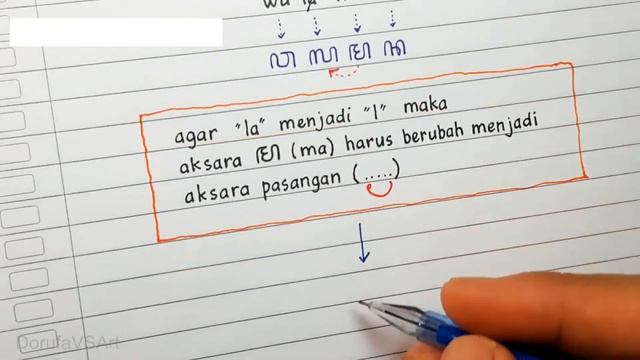 ꦭ ꦩ
agar "la" menjadi "l" maka
aksara ꦩ (ma) harus berubah menjadi
aksara pasangan (.....)
DorufaVSArt